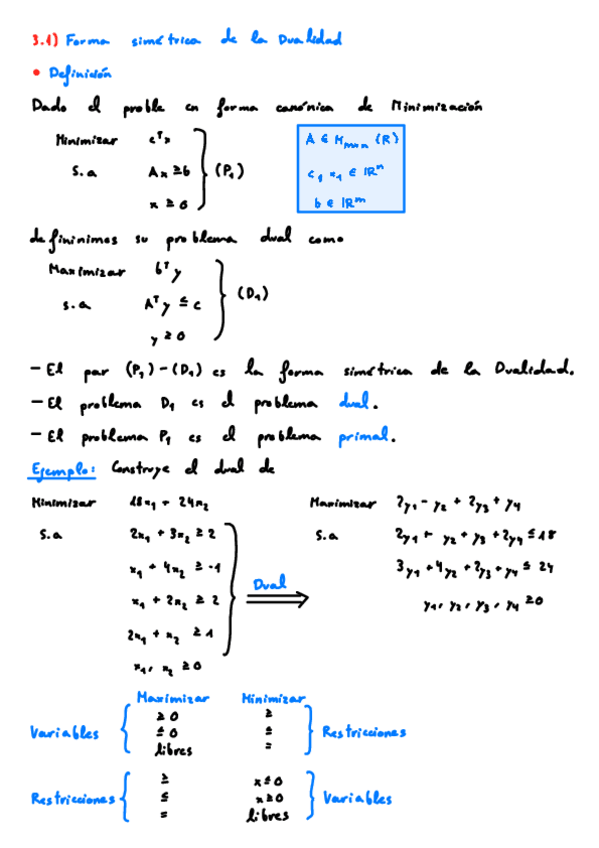 3.1) Forma simétrica de la Dualidad
• Definición
Dado el proble en forma canónica de Minimización
Minimizar cᵀx
s.a Ax ≥ b (P₁)
x ≥ 0
A ∈ Mmxn (R)
c, x, ∈ ℝⁿ
b ∈ ℝᵐ
defininimos su problema dual como
Maximizar bᵀy
s.a Aᵀy ≤ c (D₁)
y ≥ 0
- El par (P₁) - (D₁) es la forma simétrica de la Dualidad.
- El problema D₁ es el problema dual.
- El problema P₁ es el problema primal.
Ejemplo: Construye el dual de
Minimizar 18x₁ + 24x₂
s.a 2x₁ + 3x₂ ≥ 2
x₁ + 4x₂ ≥ -1
x₁ + 2x₂ ≥ 2
2x₁ + x₂ ≥ 1
x₁, x₂ ≥ 0
Dual
Maximizar 2y₁ - y₂ + 2y₃ + y₄
s.a 2y₁ + y₂ + y₃ + 2y₄ ≤ 18
3y₁ + 4y₂ + 2y₃ + y₄ ≤ 24
y₁, y₂, y₃, y₄ ≥ 0
Maximizar Minimizar
Variables ≥ 0 ≥ Restricciones
≤ 0 ≤
libres =
Restricciones ≥ x ≤ 0 Variables
≤ x ≥ 0
= libres